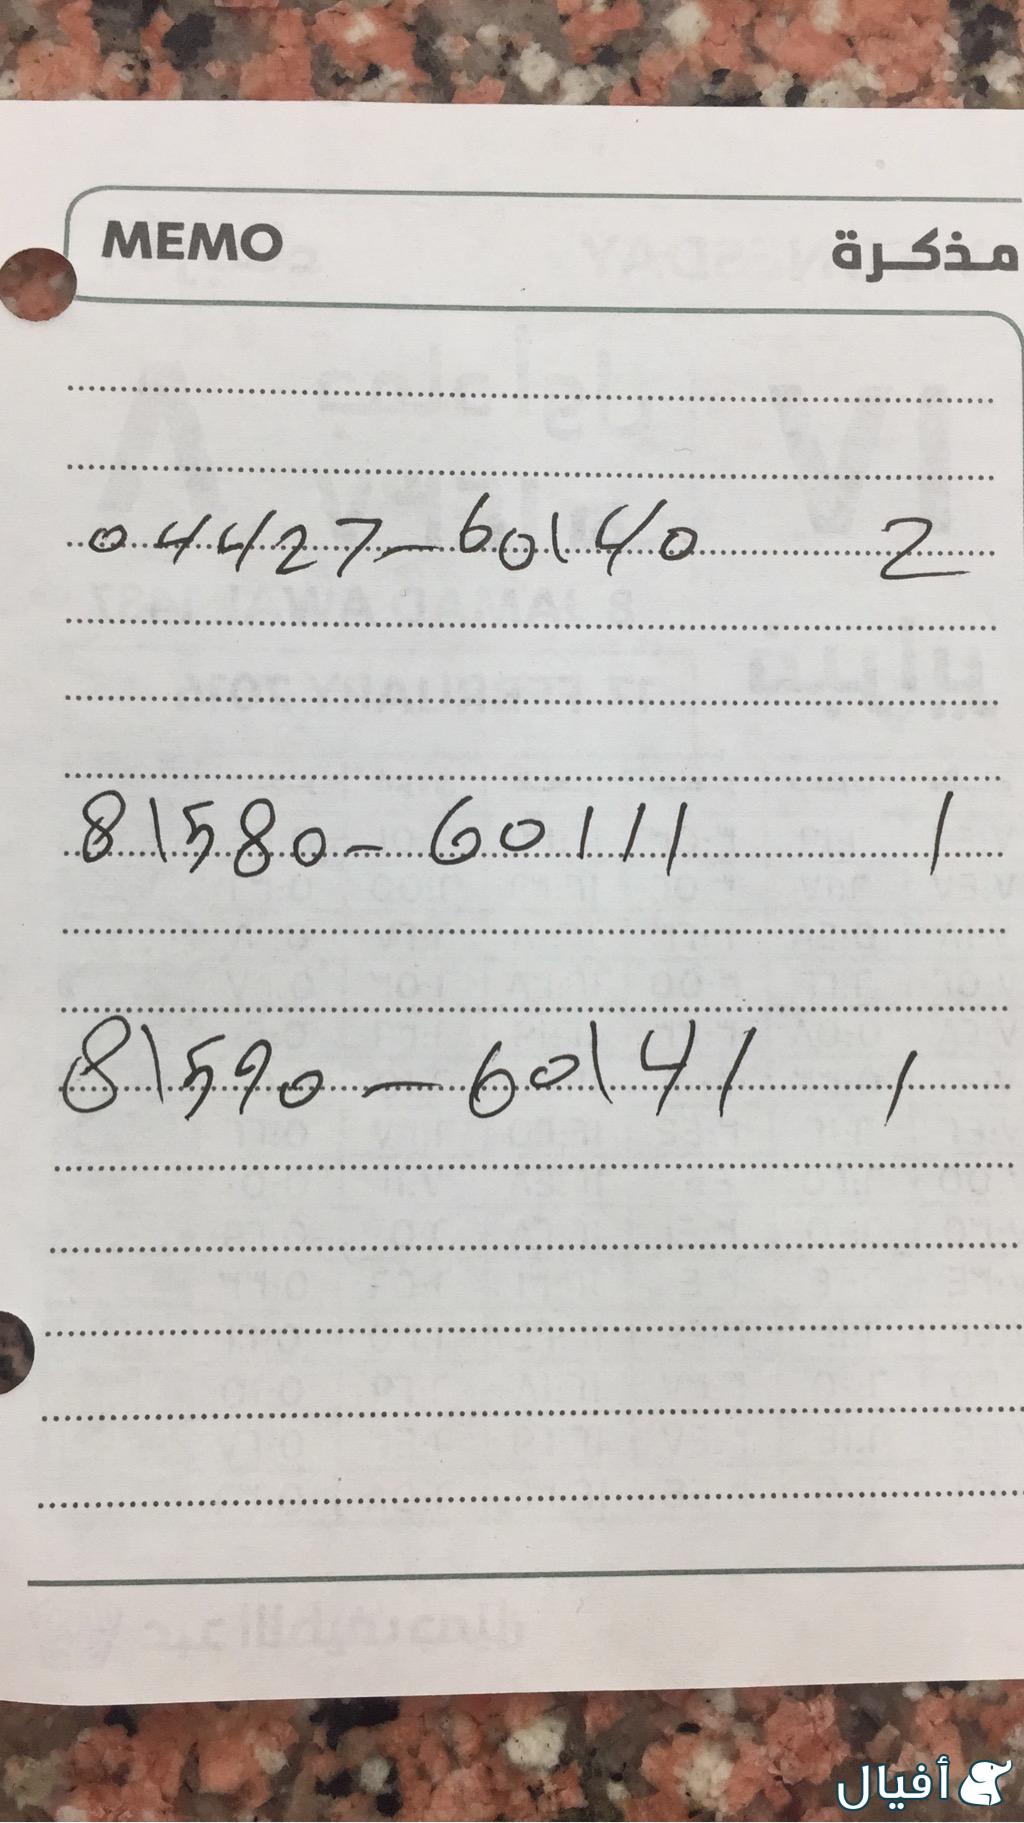 MEMO مذكرة
04427-60140 2
81580-60111 1
81590-60141 1
أفيال